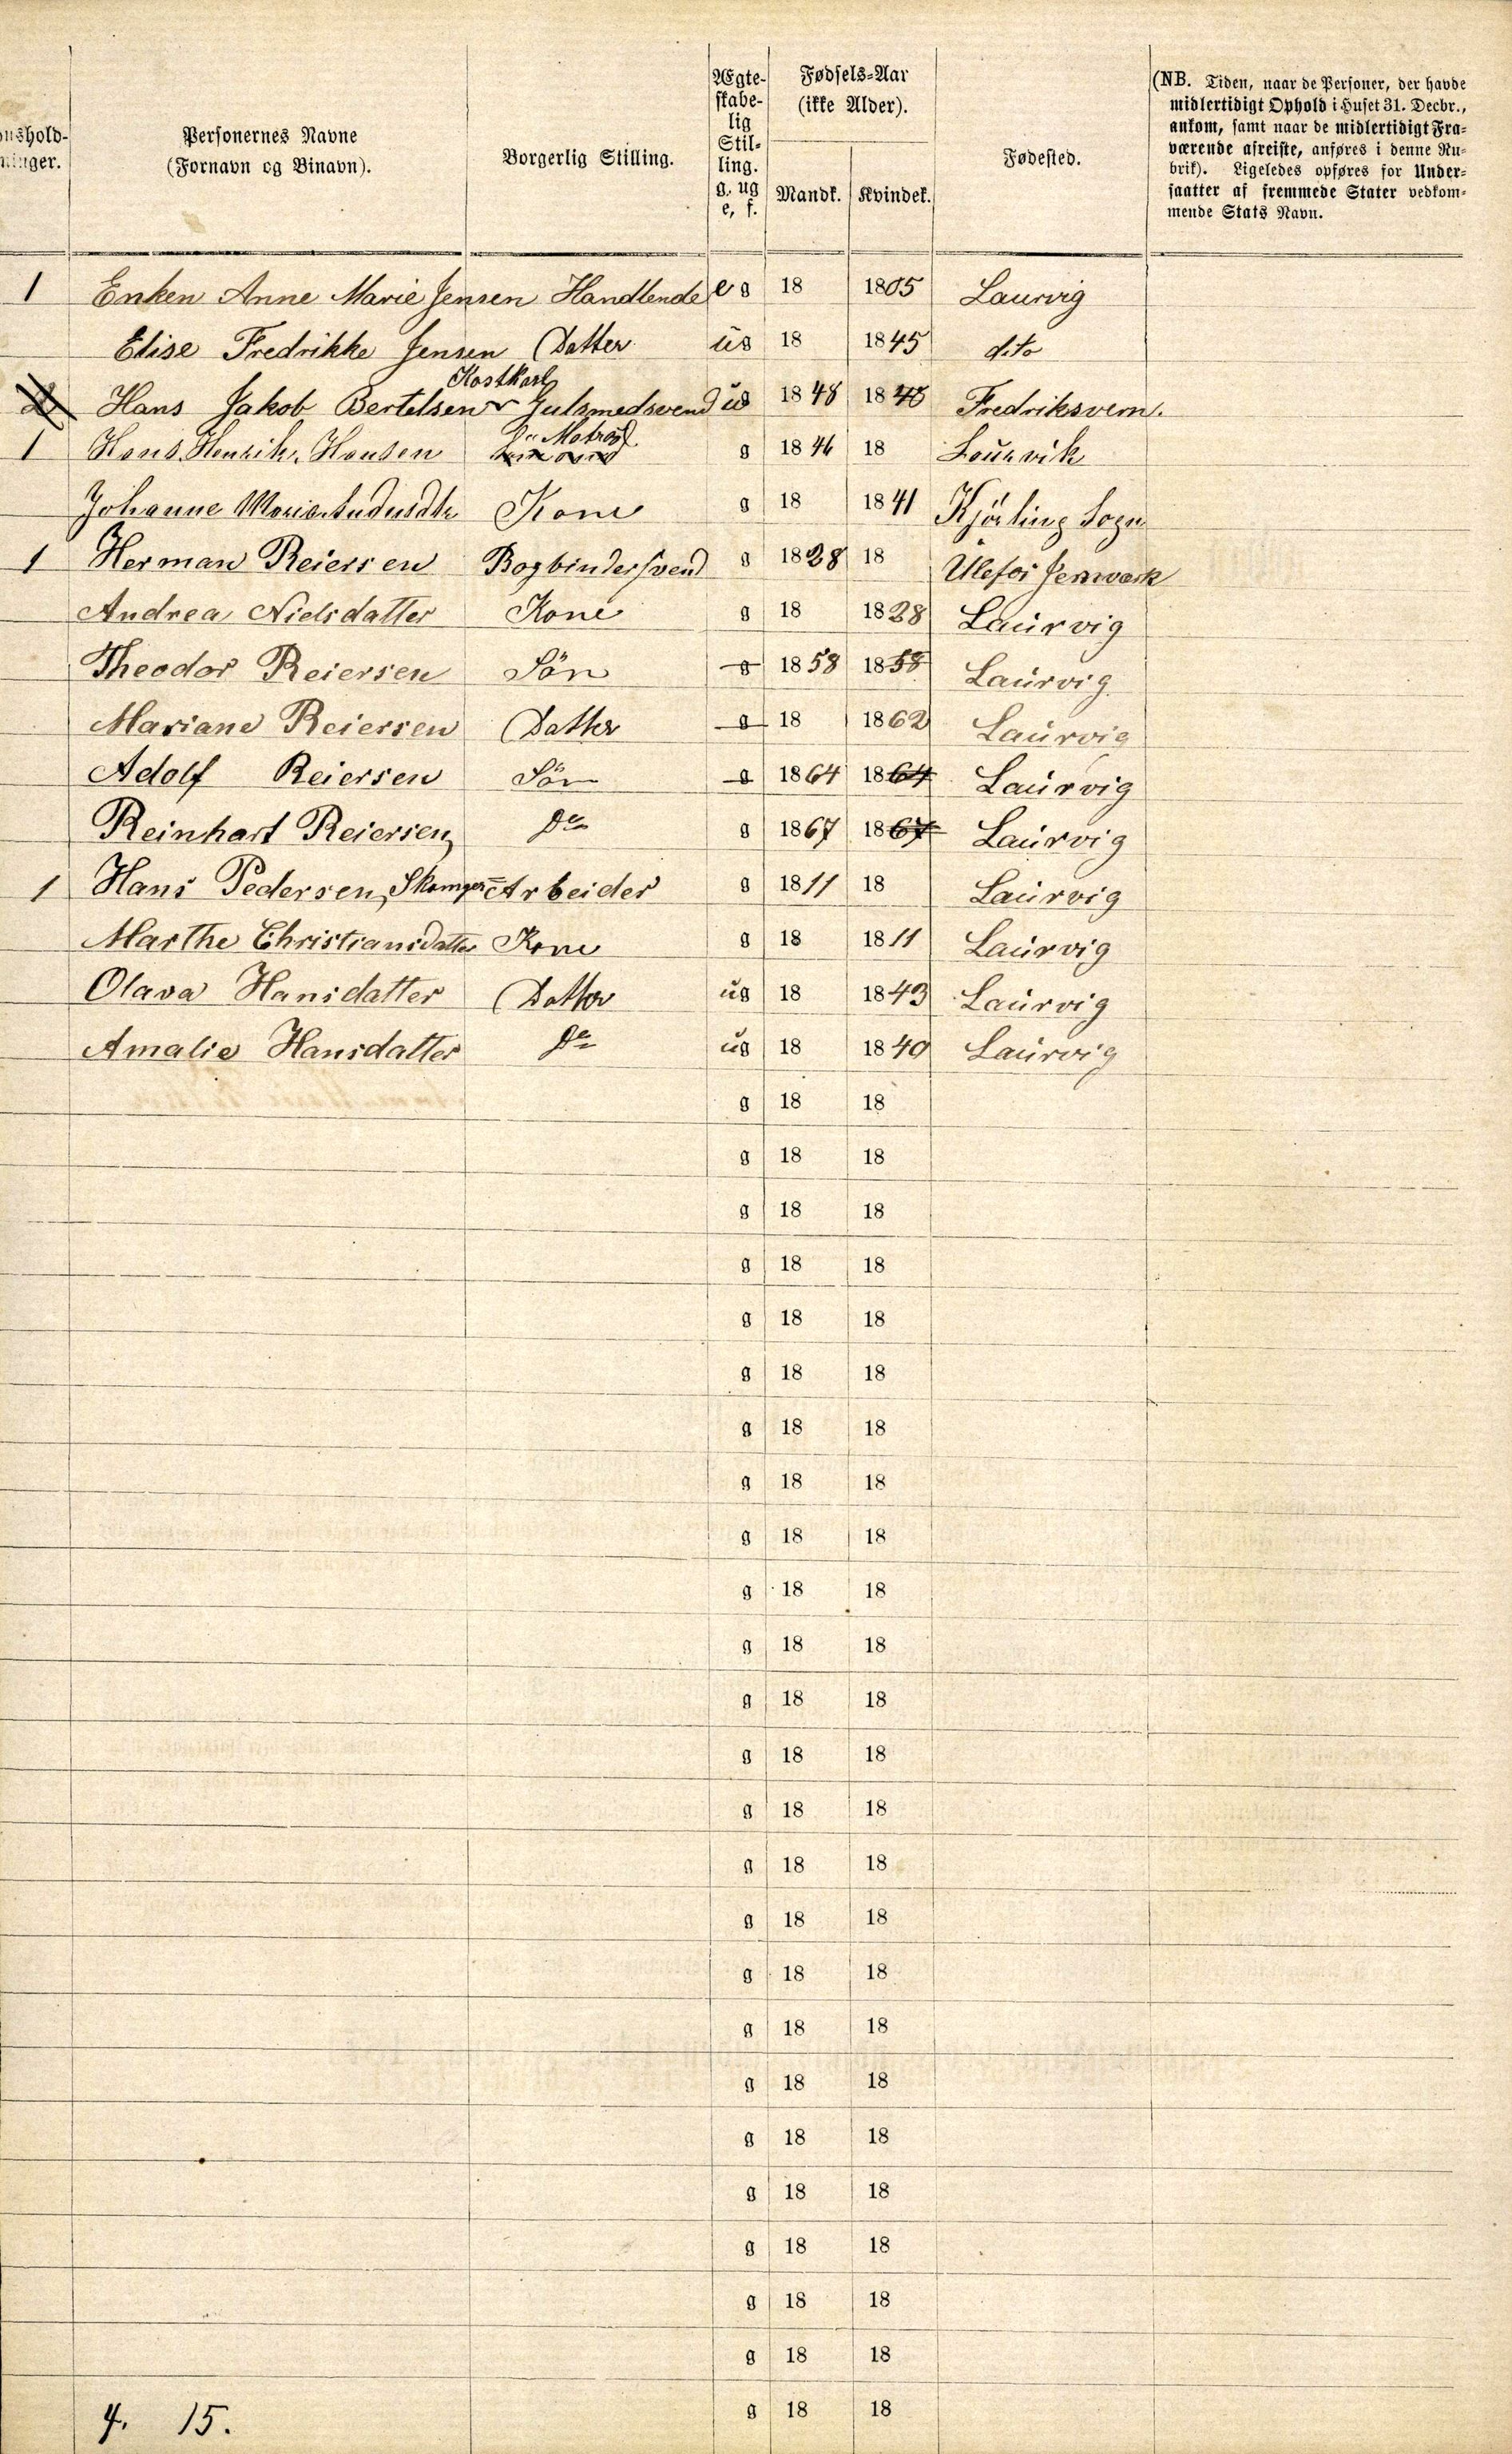 onshold-
ninger.
Personernes Navne
(Fornavn og Binavn).
Borgerlig Stilling.
Ægte-
skabe-
lig
Stil-
ling.
g. ug
e, f.
Fødsels-Aar
(ikke Alder).
Mandk. Kvindek.
Fødested.
(NB. Tiden, naar de Personer, der havde
midlertidigt Ophold i Huset 31. Decbr.,
ankom, samt naar de midlertidigt Fra-
værende afreiste, anføres i denne Ru-
brik). Ligeledes opføres for Under-
saatter af fremmede Stater vedkom-
mende Stats Navn.
1 Enken Anne Marie Jensen Handlende e g 18 1805 Laurvig
Elise Fredrikke Jensen Datter ug 18 1845 dito
Kostkarl
2 Hans Jakob Bertelsen Gulsmedsvend ug 1848 1848 Fredriksvern.
1 Hans Henrik Hansen Matros g 1846 18 Lourvik
Johanne Maria Kone g 18 1841 Sogn
1 Herman Reiersen Bogbindersvend g 1828 18 Ulefos Jernværk
Andrea Nielsdatter Kone g 18 1828 Laurvig
Theodor Reiersen Sön g 1858 1858 Laurvig
Mariane Reiersen Datter g 18 1862 Laurvig
Adolf Reiersen Sön g 1864 1864 Laurvig
Reinhart Reiersen Do g 1867 1867 Laurvig
1 Hans Pedersen, Arbeider g 1811 18 Laurvig
Marthe Christiansdatter Kone g 18 1811 Laurvig
Olava Hansdatter Datter ug 18 1843 Laurvig
Amalie Hansdatter Do ug 18 1840 Laurvig
g 18 18
g 18 18
g 18 18
g 18 18
g 18 18
g 18 18
g 18 18
g 18 18
g 18 18
g 18 18
g 18 18
g 18 18
g 18 18
g 18 18
g 18 18
g 18 18
g 18 18
g 18 18
g 18 18
g 18 18
g 18 18
g 18 18
g 18 18
g 18 18
4. 15. g 18 18